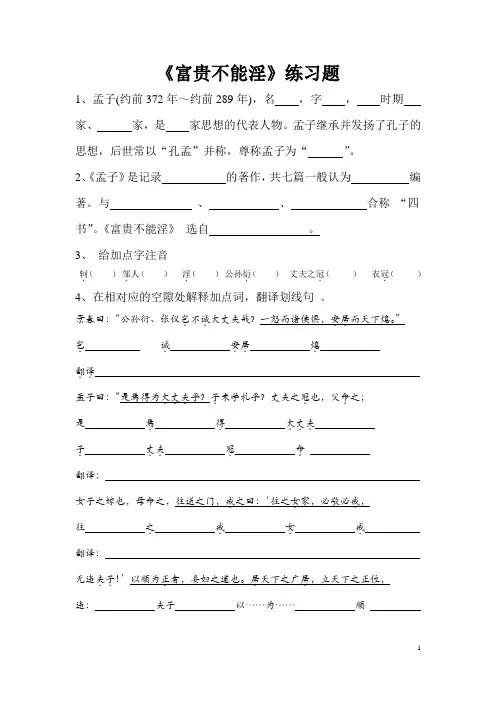 《富贵不能淫》练习题
1、孟子(约前372年～约前289年),名    ,字    ,    时期
家、      家,是    家思想的代表人物。孟子继承并发扬了孔子的
思想,后世常以“孔孟”并称,尊称孟子为“      ”。
2、《孟子》是记录          的著作,共七篇一般认为        编
著。与            、          、          合称 “四
书”。《富贵不能淫》 选自              。
3、 给加点字注音
轲(    ) 邹人(    ) 淫(    ) 公孙衍(    ) 丈夫之冠(    ) 衣冠(    )
4、在相对应的空隙处解释加点词，翻译划线句 。
景春曰：“公孙衍、张仪岂不诚大丈夫哉？一怒而诸侯惧，安居而天下熄。”
岂          诚          安居          熄
翻译
孟子曰：“是焉得为大丈夫乎？子未学礼乎？丈夫之冠也，父命之；
是          焉          得          大丈夫
子          丈夫          冠          命
翻译：
女子之嫁也，母命之，往送之门，戒之曰：‘往之女家，必敬必戒，
往          之          戒          女          戒
翻译：
无违夫子！’以顺为正者，妾妇之道也。居天下之广居，立天下之正位，
违：          夫子          以……为……          顺
1